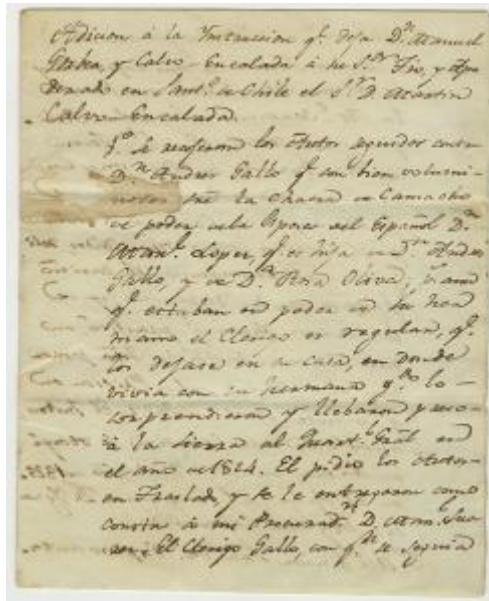 Adicion á la Instruccion qe. deja Dn. Manuel
y Calvo Encalada á su Sor. Tio, y Apo
derado en Sant.o de Chile el Sor. D. Martin
Calvo Encalada.
los Autos seguidos contra
Dn. Andres Gallo qe. son bien volumi
nosos sre. la Chacra de Camacho
en poder de la Esposa del Español Dn.
Man.l Lopez, qe. es hija de Dn. Andres
Gallo, y de Da. Rosa Oliva,
qe. estaban en poder de su her
mano el Clerigo es regular, qe.
los dejase en su casa, en donde
vivia con su hermana qdo. lo
sorprendieron y llebaron preso
á la Sierra al Quart.l Gral en
el año de 1824. El pidio los Autos
en Traslado, y se le entregaron como
consta á mi Procurador D. Man.l Sua
rez. El Clerigo Gallo, con qn. se seguia